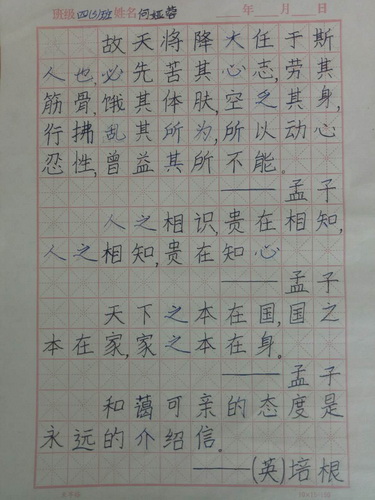 班级 四(3)班 姓名 年 月 日
故天将降大任于斯
人也,必先苦其心志,劳其
筋骨,饿其体肤,空乏其身,
行拂乱其所为,所以动心
忍性,曾益其所不能。
——孟子
人之相识,贵在相知,
人之相知,贵在知心
——孟子
天下之本在国,国之
本在家,家之本在身。
——孟子
和蔼可亲的态度是
永远的介绍信。
——(英)培根